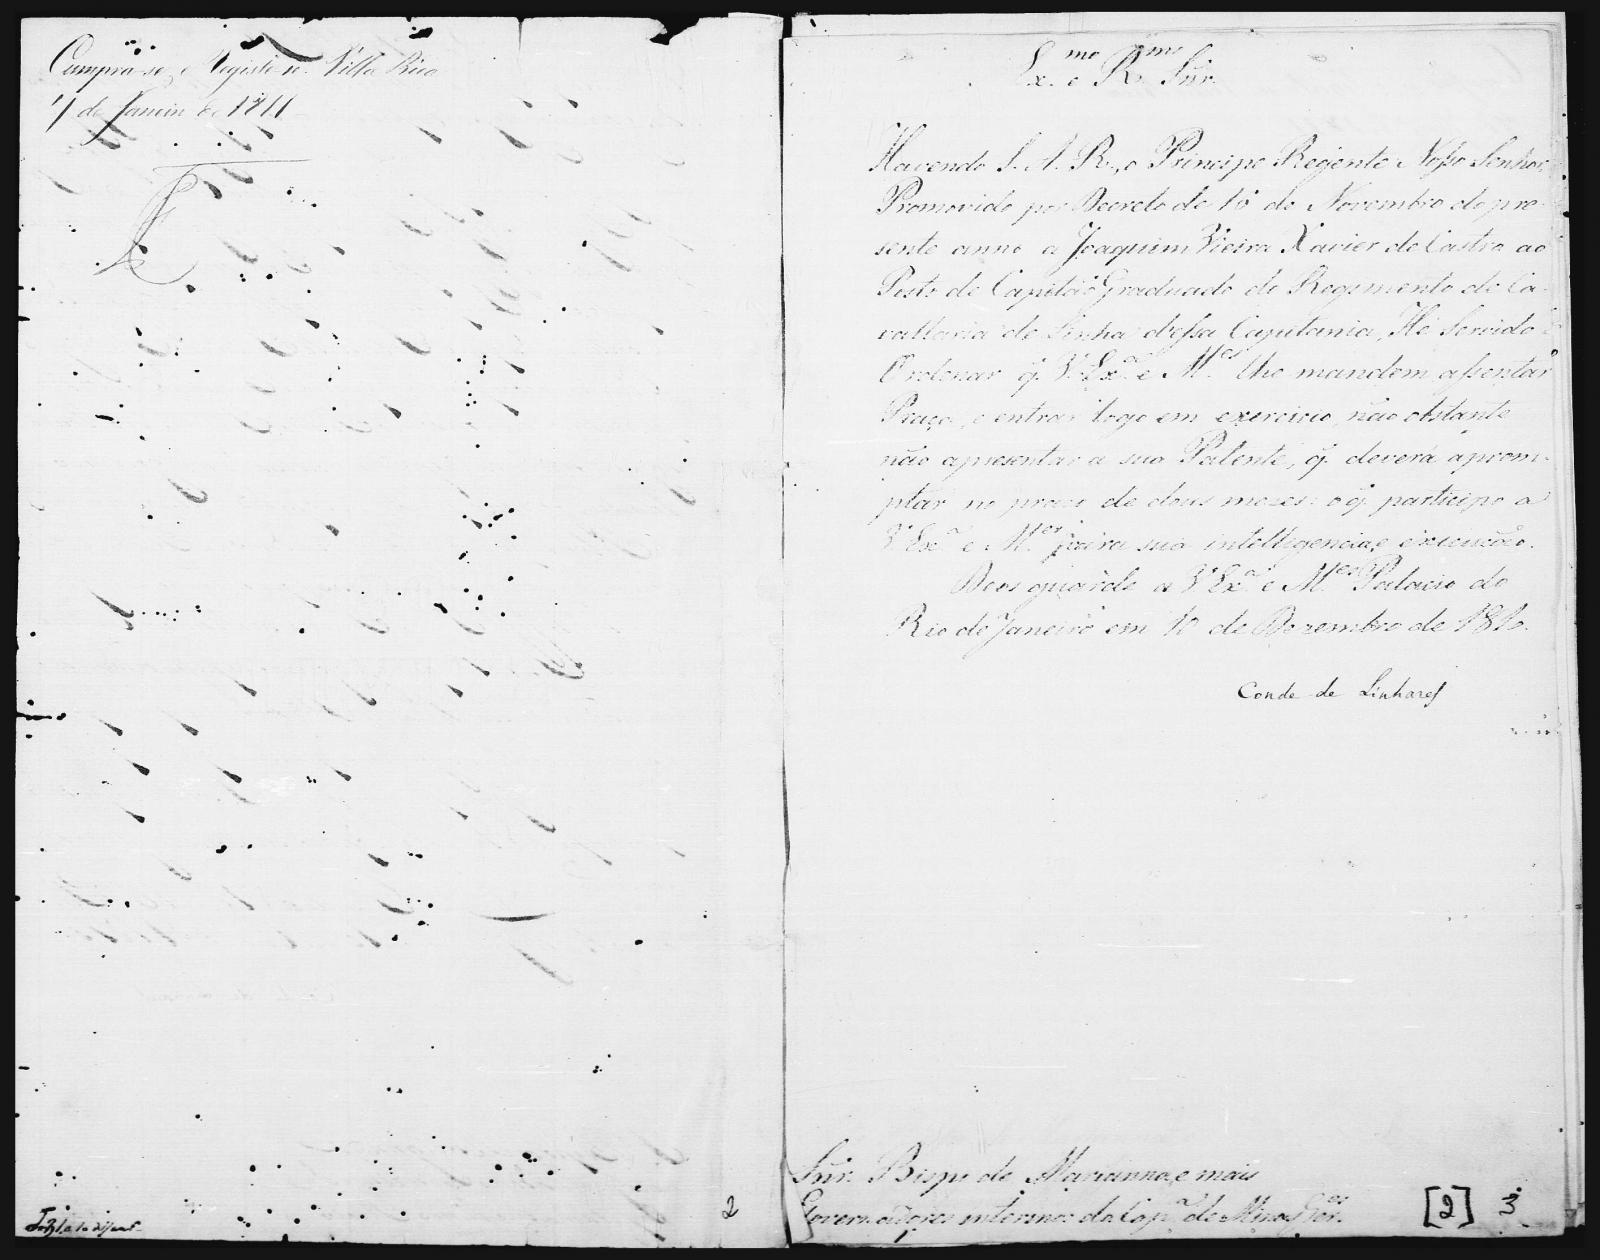 Cumpra-se, e Registe-se. Villa Rica
7 de Janeiro de 1811
2
Ex.mo e R.mo Snr.
Havendo S. A. R., o Principe Regente Nosso Senhor,
Promovido por Decreto de 16 de Novembro do pre-
sente anno a Joaquim Vieira Xavier de Castro ao
Posto de Capitão Graduado do Regimento de Ca-
vallaria de Linha dessa Capitania, Hé Servido
Ordenar q. V. Ex.a e M.es lhe mandem assentar
Praça, e entrar logo em exercicio, não obstante
não apresentar a sua Patente, q. deverá aprom-
ptar no prazo de dous mezes: o q. participo a
V. Ex.a e M.es para sua intelligencia, e execução.
Deos guarde a V. Ex.a e M.es Palacio do
Rio de Janeiro em 10 de Dezembro de 1810.
Conde de Linhares
Snr. Bispo de Marianna, e mais
Governadores interinos da Cap.nia de Minas Ger.es
[2] 3